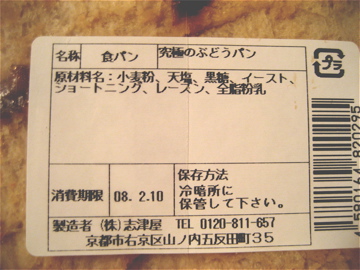 名称 食パン 究極のぶどうパン
原材料名:小麦粉、天塩、黒糖、イースト、
ショートニング、レーズン、全脂粉乳
消費期限 08. 2.10 保存方法
冷暗所に
保管して下さい。
製造者 (株)志津屋 TEL 0120-811-657
京都市右京区山ノ内五反田町35
プラ